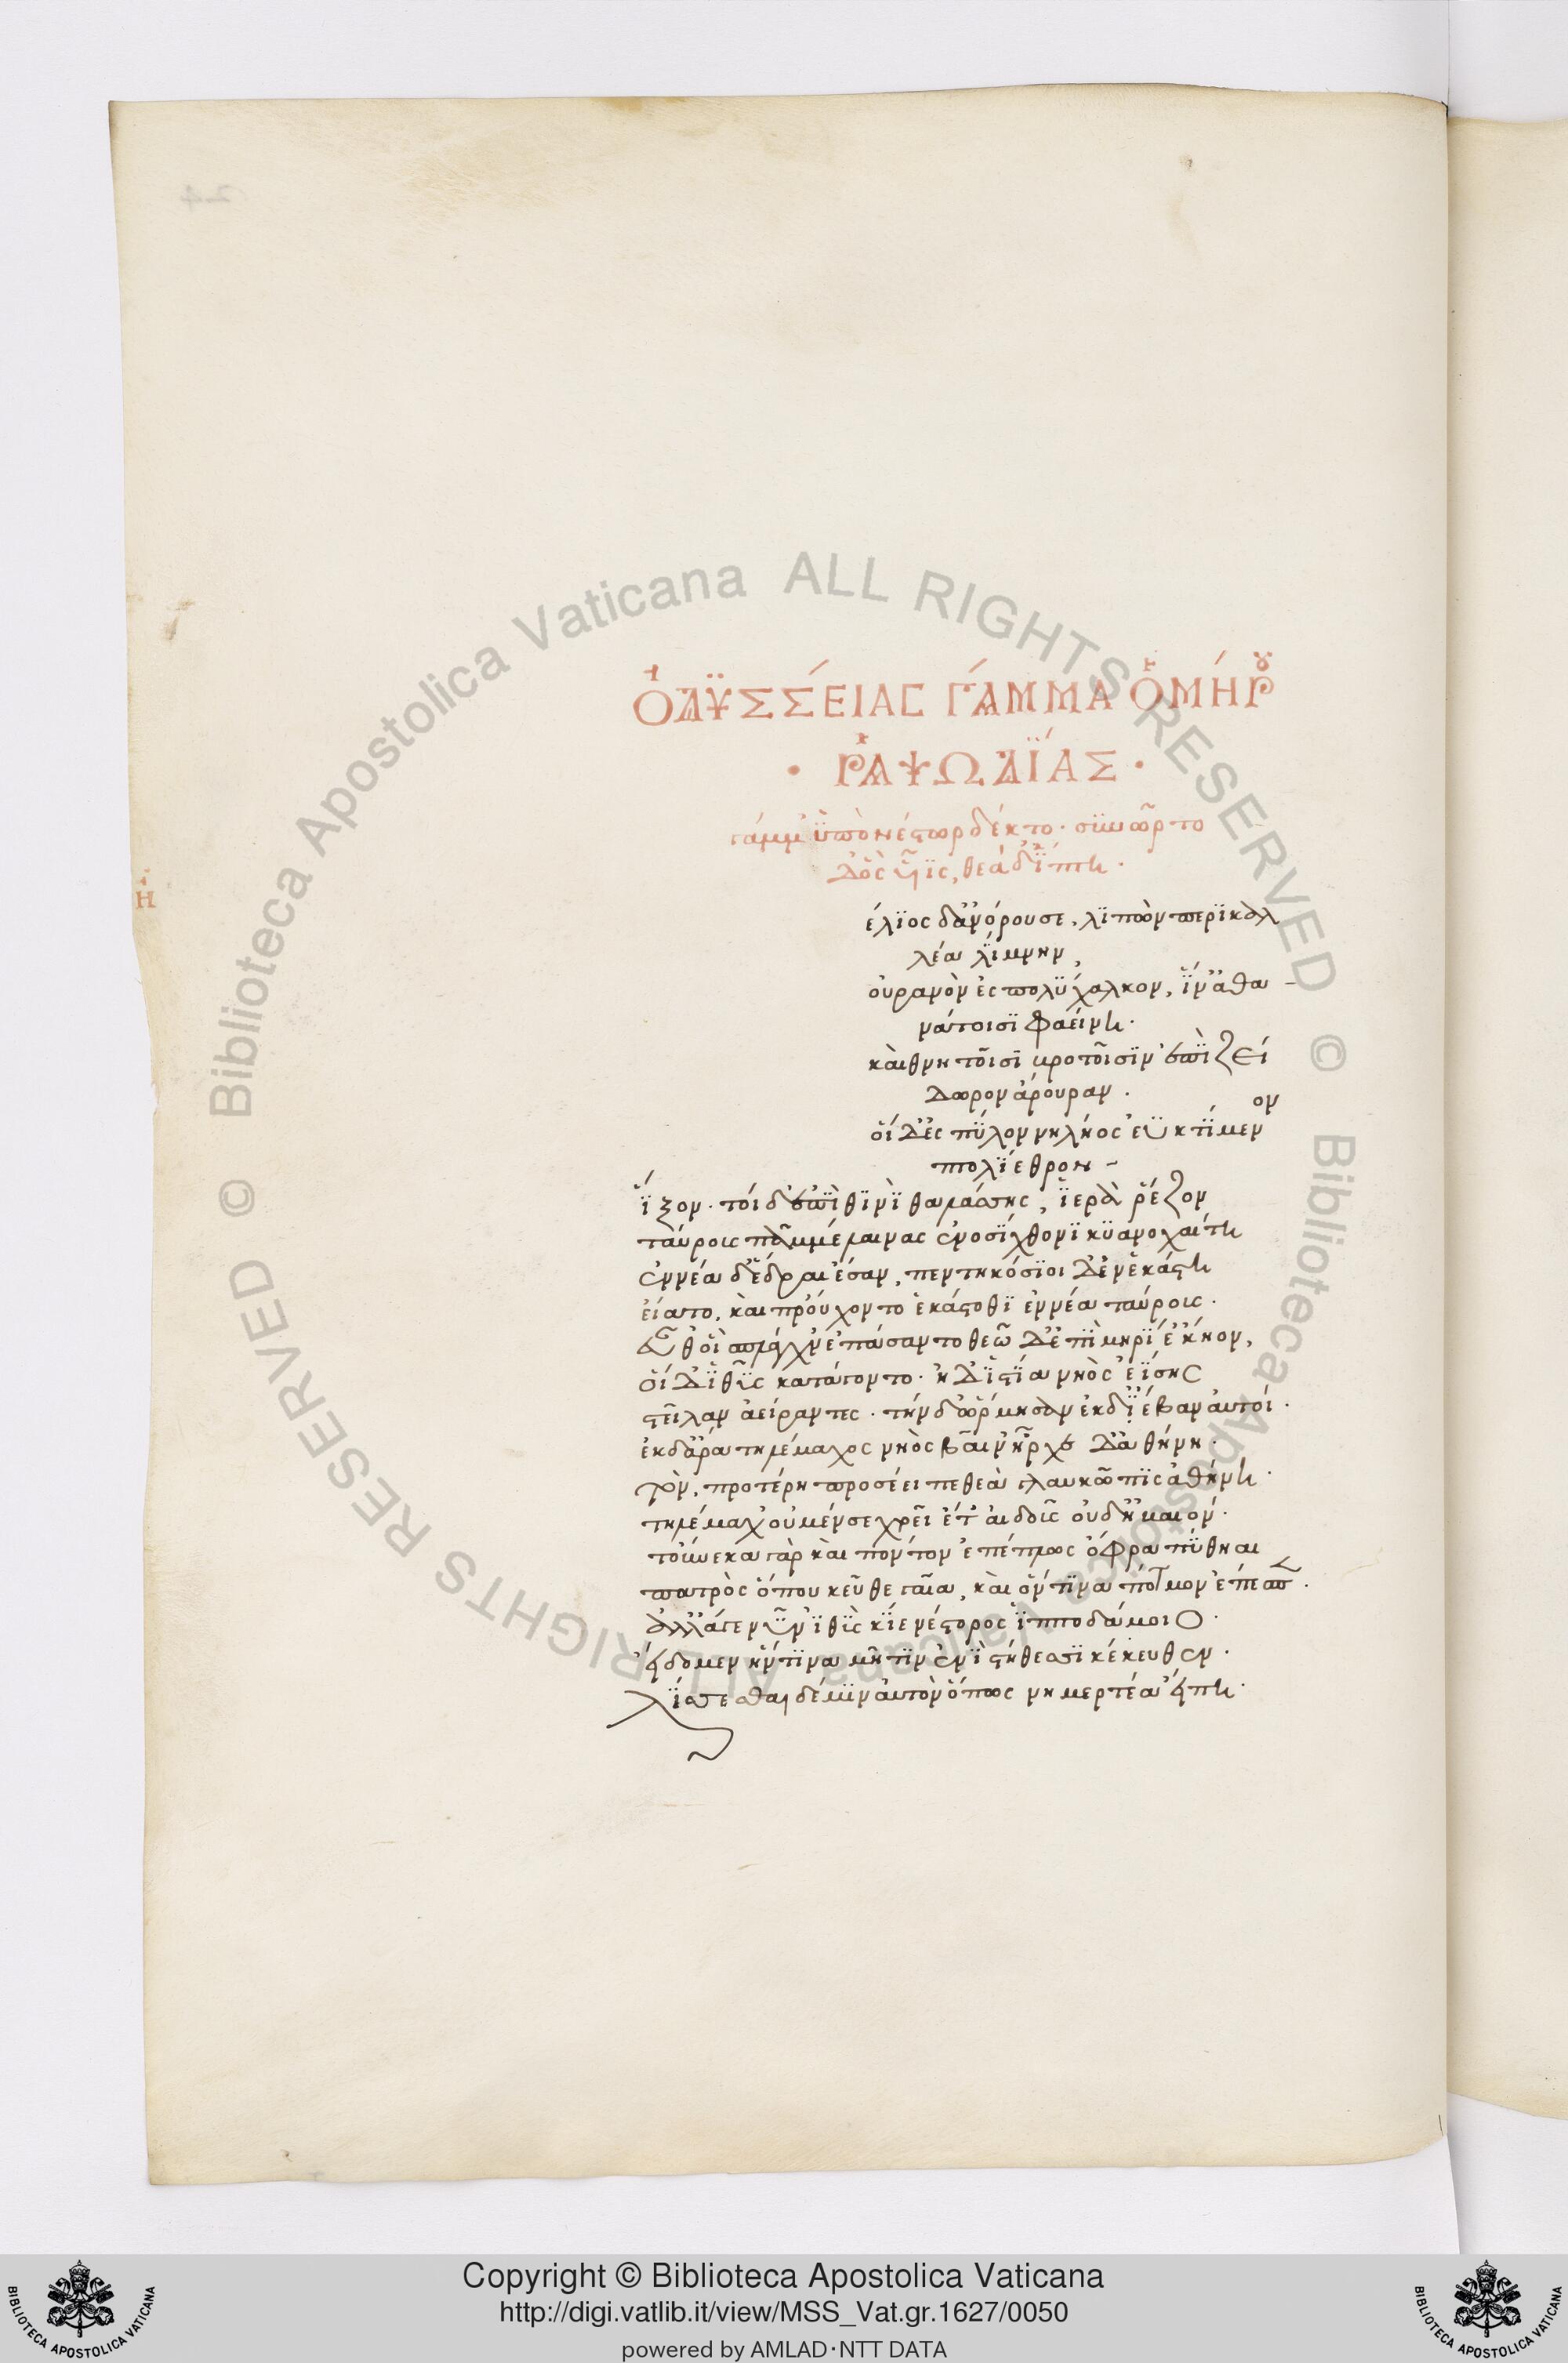 ὈΔΫΣΣΈΙΑΣ ΓΆΜΜΑ ὉΜΉΡου
· ῬΑΨΩΔΪ́ΑΣ ·
γάμμ' ϋπὸ νέστωρ δέκτο· σϋνῶρτο
Η
έλϊος δ' ἀνόρουσε, λϊπὼν περϊκαλ
λέα λΐμνην,
οὐρανὸν ἐς πολΰχαλκον, ϊ̔́ν' ἀθα
νάτοισϊ φαείνη·
καὶ θνητοῖσϊ βροτοῖσϊν ἐπὶ ζεί
δωρον ἄρουραν·
οἱ δὲ ἐς πΰλον νηλῆος ἐϋκτΐμενον
πτολΐεθρον
ἷξον· τοὶ δ' ἐπὶ θϊνῒ θαλάσσης, ϊ̔ερὰ ῥέζον
ταύροις παμμέλαινας ἐνοσΐχθονϊ κϋανοχαίτη
ἐννέα δ' ἕδραι ἔσαν, πεντηκόσϊοι δ' ἐν ἑκάστη
εἵατο, καὶ προύχοντο ἑκάστοθϊ ἐννέα ταύροις·
εὖθ' οἱ σπλάγχν' ἐπάσαντο θεῶ δ' ἐπὶ μηρΐ' ἔκηον,
οἱ δ' ϊ̓θὺς κατάγοντο· ἠδ' ϊ̔στΐα νηὸς ἐΐσης
στεῖλαν ἀείραντες· τὴν δ' ὥρμησαν ἐκ δ' ἔβαν αὐτοί·
ἐκ δ' ἄρα τηλέμαχος νηὸς βαῖν' ἦρχε δ' ἀθήνη·
τὸν, προτέρη προσέειπε θεὰ γλαυκῶπϊς ἀθήνη·
τηλέμαχ' οὐ μέν σε χρεῖ ἔτ' αἰδοῦς οὐδ' ἠβαιόν·
τοὔνεκα γὰρ καὶ πόντον ἐπέπλως ὄφρα πΰθηαι
πατρὸς ὅπου κεῦθε γαῖα, καὶ ὅν τϊνα πότμον ἐπέσπεν·
ἀλλ' ἄγε νῦν ϊ̓θὺς κΐε νέστορος ϊ̔πποδάμοιο·
εἴδομεν ἥντϊνα μῆτϊν ἐνῒ στήθεσσϊ κέκευθεν·
λΐσσεσθαι δέ μϊν αὐτὸν ὅπως νημερτέα εἴπη·
Copyright © Biblioteca Apostolica Vaticana
http://digi.vatlib.it/view/MSS_Vat.gr.1627/0050
powered by AMLAD·NTT DATA
BIBLIOTECA APOSTOLICA VATICANA
BIBLIOTECA APOSTOLICA VATICANA
Biblioteca Apostolica Vaticana ALL RIGHTS RESERVED ©
Biblioteca Apostolica Vaticana ALL RIGHTS RESERVED ©